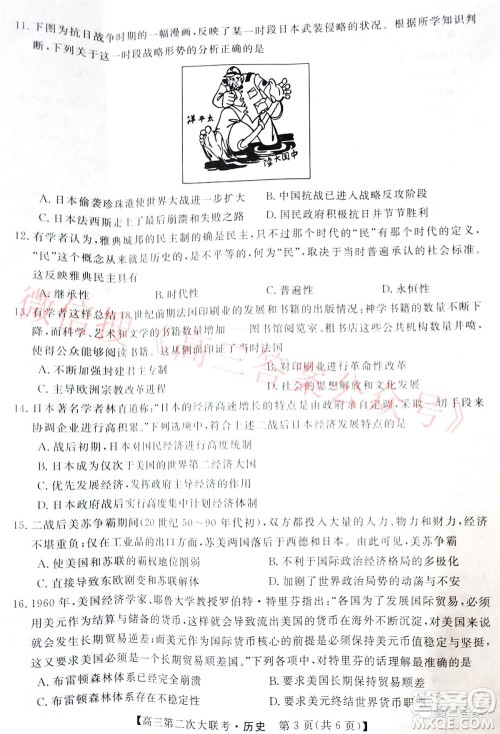 11. 下图为抗日战争时期的一幅漫画,反映了某一时段日本武装侵略的状况。根据所学知识判
断,下列关于这一时段战略形势的分析正确的是
太平洋
中国大陆
A. 日本偷袭珍珠港使世界大战进一步扩大
B. 中国抗战已进入战略反攻阶段
C. 日本法西斯走上了最后崩溃和失败
D. 国民政府积极开辟敌后战场
12. 有学者认为,雅典城邦的民主制的确是民主,只不过那个时代的“民”不是我们这个时代的
“民”,不是普遍的,不是世界上大多数人的,但它确实适应了当时普遍承认的社会标准。
这反映雅典民主具有
A. 继承性
B. 时代性
C. 普遍性
D. 永恒性
13. 有学者这样总结18世纪前期法国印刷业的发展和书籍的出版情况:神学书籍的数量不断下
降,而科学、艺术和文学书籍的数量增加
图书馆阅览书店这些公共机构数量的上升,
使得公众能够阅读更多的书籍。这从侧面体现出启蒙运动
A. 不断加强封建君主专制
B. 对印刷业进行革命性改革
C. 主导欧洲宗教改革
D. 具有广泛的社会基础
14. 日本著名学者林直道称:“日本的经济高速增长的特点是由政府亲自定调,参与采取一切手段来
协调企业进行高积累。”下列选项与这一观点相符的是
A. 战后初期,日本对国民经济进行大调整
B. 日本成为仅次于美国的世界第二经济大国
C. 政府主导经济,发挥宏观调控功能
D. 日本战后实行高度集中的计划经济体制
15. 二战后美苏争霸期间(20世纪50～90年代初),双方都投入大量的人力、物力、财力,经济
不堪重负;一度美国的经济,仅在工业品和出口等方面就先后落后于西德和日本。美苏争霸
A. 使美国和苏联的霸权地位有所削弱
B. 不利于国际政治经济格局的多极化
C. 直接导致东欧剧变和苏联解体
D. 使第三世界经济迅速发展
16. 1960年,美国经济学家、耶鲁大学教授罗伯特·特里芬指出:“各国为了发展国际贸易,必须
用美元作为结算与储备的货币,这样就会导致流出美国的货币在海外不断沉淀,对美国来说就会
发生长期贸易逆差;而美元作为国际货币核心的前提是必须保持美元币值稳定与坚挺,这又
要求美国必须是一个长期贸易顺差国。”这段材料反映了
A. 布雷顿森林体系存在缺陷
B. 美国通过布雷顿森林体系稳定美元币值
C. 布雷顿森林体系已经崩溃
D. 美元成为世界货币保证了美国贸易顺差
高三第二次大联考·历史 第3页(共6页)
微信搜《高三答案公众号》